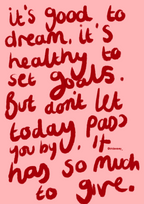 it's good to
dream, it's
healthy to
set goals.
But don't let
today pass
you by, it
has so much
to give.